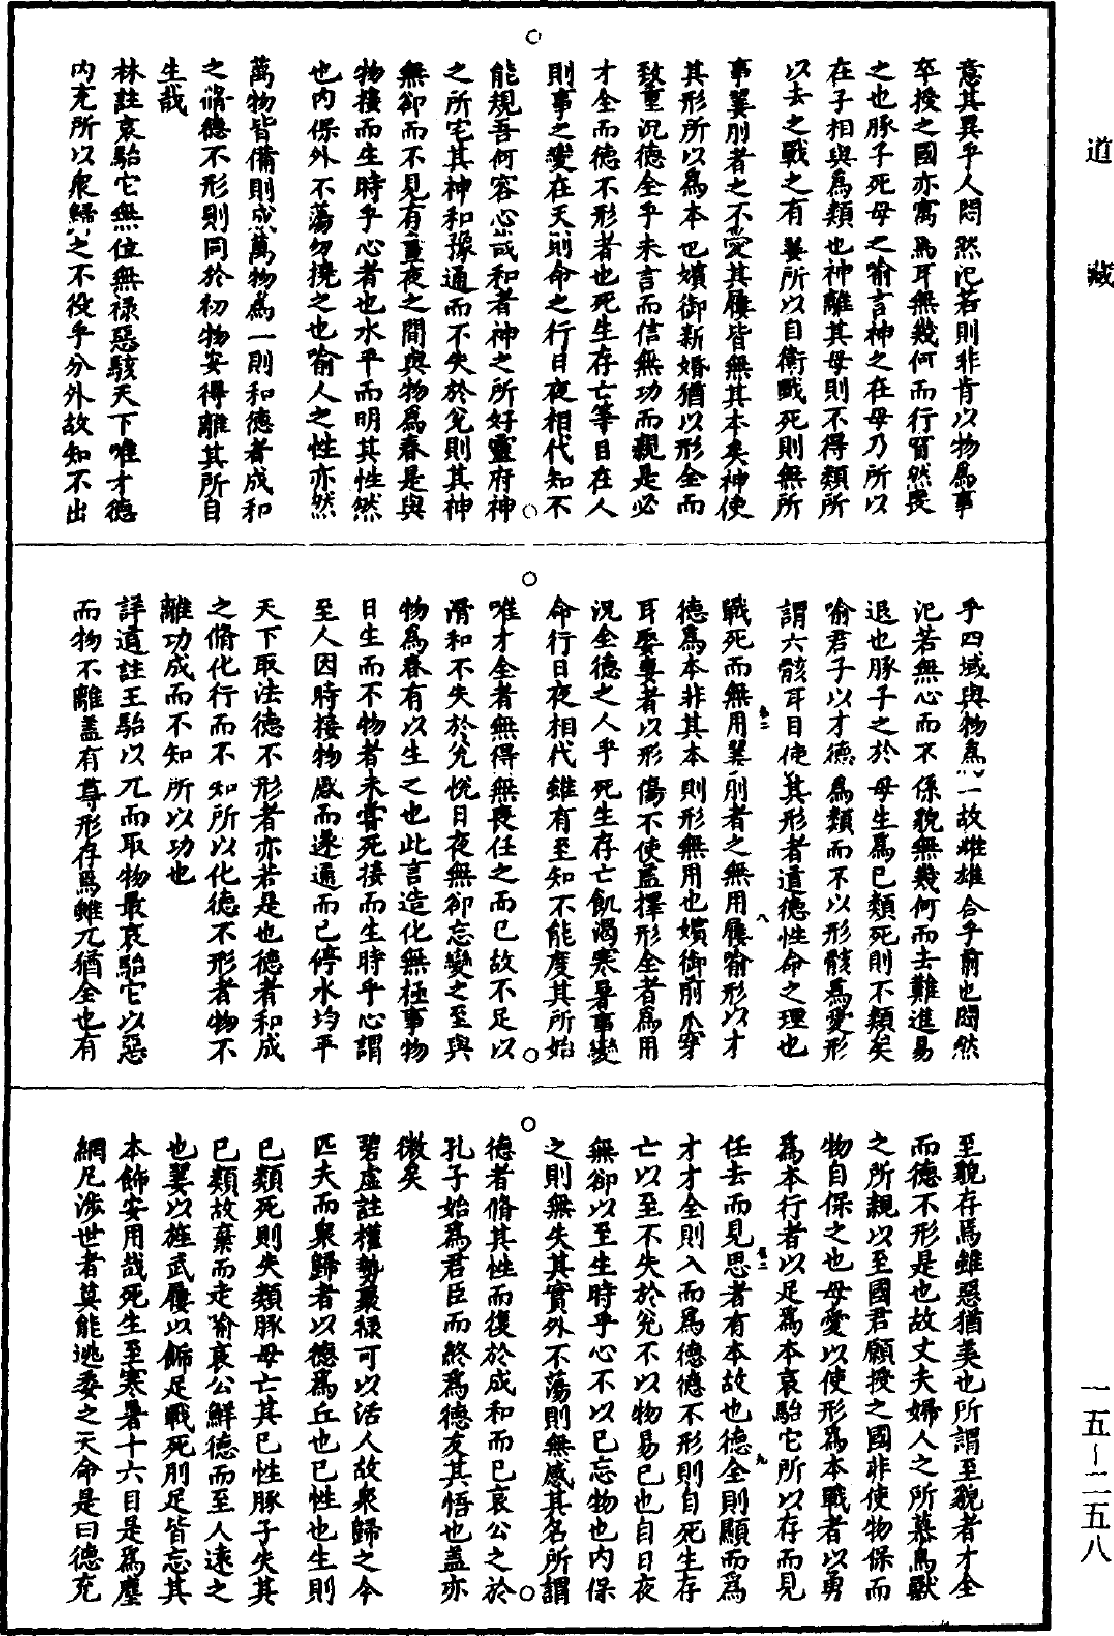 道藏
意其異乎人悶然氾若則非肯以物爲事
卒授之國亦寓焉耳無幾何而行䘏然畏
之也豚子死母之喻言神之在母乃所以
在子相與爲類也神離其母則不得類所
以去之戰之有翣所以自衛戰死則無所
事翣刖者之不愛其屨皆無其本矣神使
其形所以爲本也嬪御新婚猶以形全而
致重況德全乎未言而信無功而親是必
才全而德不形者也死生存亡等目在人
則事之變在天則命之行日夜相代知不
能規吾何容心哉和者神之所好靈府神
之所宅其神和豫通而不失於兌則其神
無郤而不見有晝夜之間與物爲春是與
物接而生時乎心者也水平而明其性然
也內保外不蕩勿撓之也喻人之性亦然
萬物皆備則成萬物爲一則和德者成和
之脩德不形則同於初物安得離其所自
生哉
林註哀駘它無位無祿惡駭天下唯才德
內充所以衆歸之不役乎分外故知不出
乎四域與物爲一故雌雄合乎前也悶然
氾若無心而不係貌無幾何而去難進易
退也豚子之於母生爲己類死則不類矣
喻君子以才德爲類而不以形骸爲愛形
謂六骸耳目使其形者道德性命之理也
戰死而無用翣刖者之無用屨喻形以才
德爲本非其本則形無用也嬪御前爪穿
耳娶妻者以形傷不使盖擇形全者爲用
況全德之人乎死生存亡飢渴寒暑事變
命行日夜相代雖有至知不能度其所始
唯才全者無得無喪任之而已故不足以
滑和不失於兌悅日夜無郤忘變之至與
物爲春有以生之也此言造化無極事物
日生而不物者未嘗死接而生時乎心謂
至人因時接物感而遂通而已停水均平
天下取法德不形者亦若是也德者和成
之脩化行而不知所以化德不形者物不
離功成而不知所以功也
詳道註王駘以兀而取物最哀駘它以惡
而物不離蓋有尊形存焉雖兀猶全也有
至貌存焉雖惡猶美也所謂至貌者才全
而德不形是也故丈夫婦人之所慕鳥獸
之所親以至國君願授之國非使物保而
物自保之也母愛以使形爲本戰者以勇
爲本行者以足爲本哀駘它所以存而見
任去而見思者有本故也德全則顯而爲
才才全則入而爲德德不形則自死生存
亡以至不失於兌不以物易己也自日夜
無郤以至生時乎心不以己忘物也內保
之則無失其實外不蕩則無感其名所謂
德者脩其性而復於成和而已哀公之於
孔子始爲君臣而終爲德友其悟也蓋亦
微矣
碧虛註權勢聚祿可以活人故衆歸之今
匹夫而衆歸者以德爲丘也己性也生則
己類死則失類豚母亡其己性豚子失其
己類故棄而走喻哀公鮮德而至人遠之
也翣以旌武屨以飾足戰死刖足皆忘其
本飾安用哉死生至寒暑十六目是爲塵
網凡涉世者莫能逃委之天命是曰德充
一五-二五八